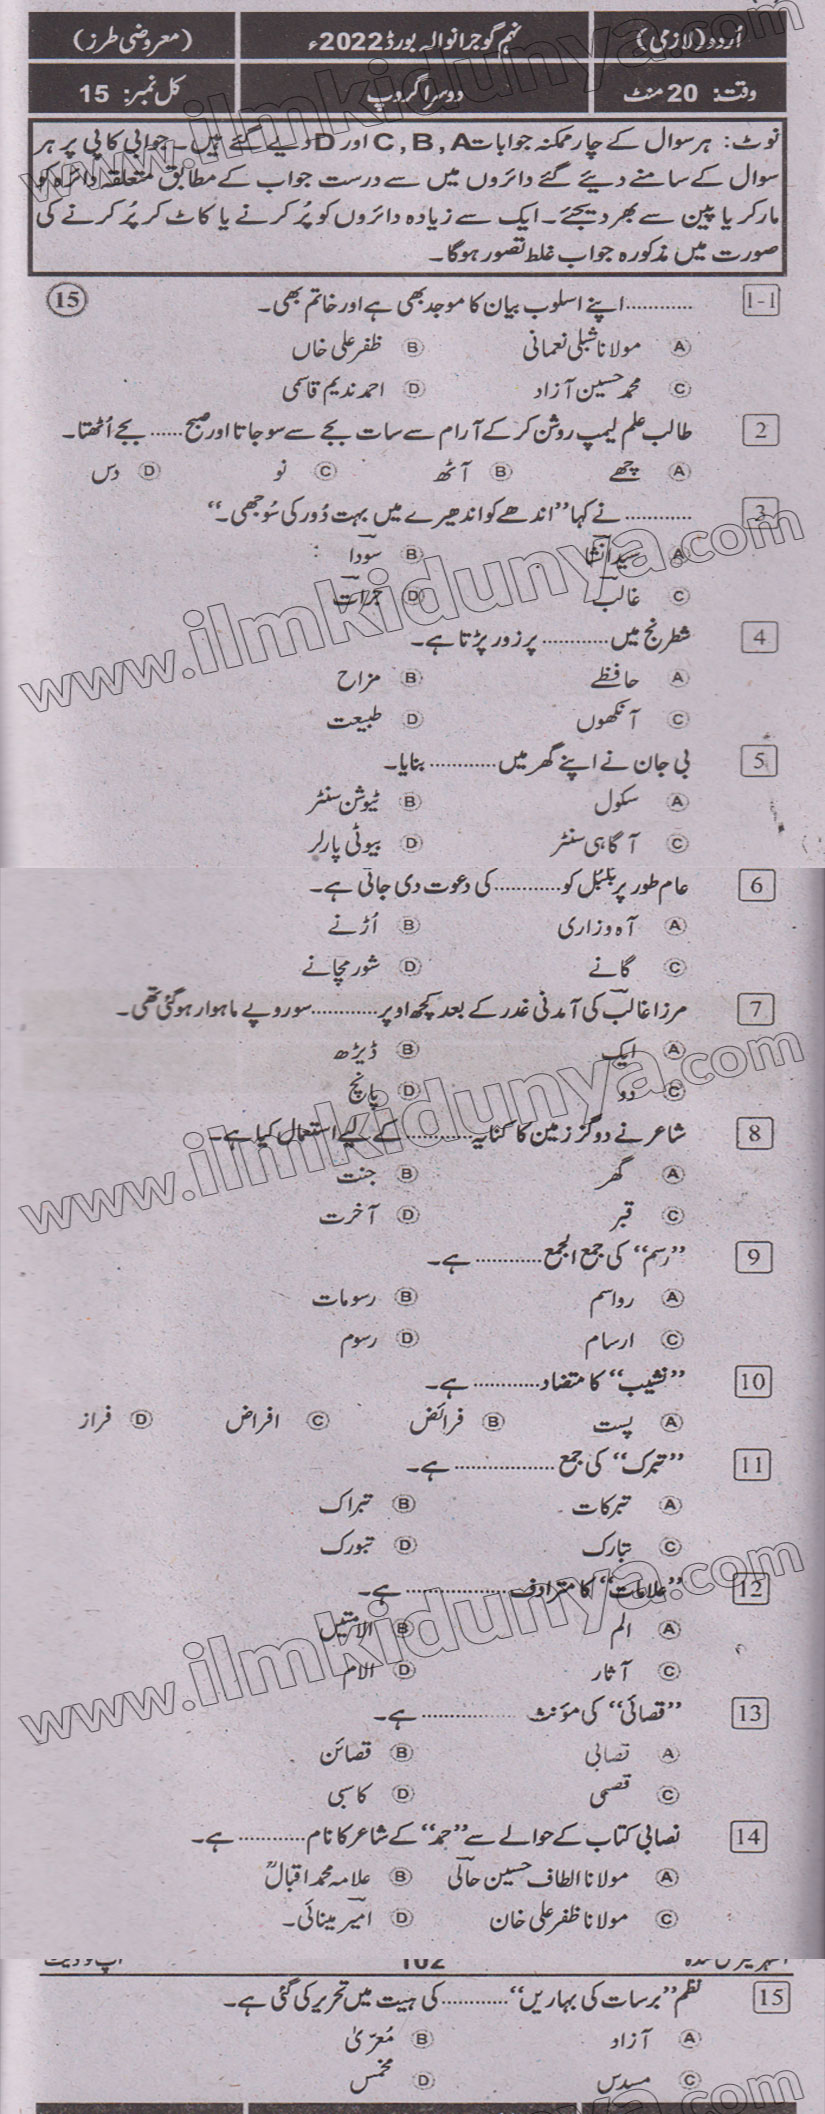 اُردو (لازمی) نہم گوجرانوالہ بورڈ 2022ء (معروضی طرز)
وقت: 20 منٹ دوسرا گروپ کل نمبر: 15
نوٹ: ہر سوال کے چار ممکنہ جوابات A, B, C اور D دیے گئے ہیں۔ جوابی کاپی پر ہر
سوال کے سامنے دیئے گئے دائروں میں سے درست جواب کے مطابق متعلقہ دائرہ کو
مارکر یا پین سے بھر دیجئے۔ ایک سے زیادہ دائروں کو پُر کرنے یا کاٹ کر پُر کرنے کی
صورت میں مذکورہ جواب غلط تصور ہوگا۔
1-1 ............ اپنے اسلوب بیان کا موجد بھی ہے اور خاتم بھی۔ 15
A مولانا شبلی نعمانی B ظفر علی خاں
C محمد حسین آزاد D احمد ندیم قاسمی
2 طالب علم لیمپ روشن کر کے آرام سے سات بجے سے سو جاتا اور صبح ...... بجے اُٹھتا۔
A چھے B آٹھ C نو D دس
3 ............ نے کہا ”اندھے کو اندھیرے میں بہت دُور کی سُوجھی۔“
A سید انشا B سودا
C غالب D جرات
4 شطرنج میں ............ پر زور پڑتا ہے۔
A حافظے B مزاح
C آنکھوں D طبیعت
5 بی جان نے اپنے گھر میں ............ بنایا۔
A سکول B ٹیوشن سنٹر
C آگاہی سنٹر D بیوٹی پارلر
6 عام طور پر بلبل کو ............ کی دعوت دی جاتی ہے۔
A آہ و زاری B اُڑنے
C گانے D شور مچانے
7 مرزا غالب کی آمدنی غدر کے بعد کچھ اوپر ............ سو روپے ماہوار ہو گئی تھی۔
A ایک B ڈیڑھ
C دو D پانچ
8 شاعر نے دو گز زمین کا کنایہ ............ کے لیے استعمال کیا ہے۔
A گھر B جنت
C قبر D آخرت
9 ”رسم“ کی جمع الجمع ............ ہے۔
A رواسم B رسومات
C ارسام D رسوم
10 ”نشیب“ کا متضاد ............ ہے۔
A پست B فرائض C افراض D فراز
11 ”تبرک“ کی جمع ................. ہے۔
A تبرکات B تبراک
C تبارک D تبورک
12 ”علامات“ کا مترادف ................. ہے۔
A الم B الامتیں
C آثار D الام
13 ”قصائی“ کی مؤنث ................. ہے۔
A قصابی B قصائن
C قصمی D کاسبی
14 نصابی کتاب کے حوالے سے ”حمد“ کے شاعر کا نام ............ ہے۔
A مولانا الطاف حسین حالی B علامہ محمد اقبالؒ
C مولانا ظفر علی خان D امیر مینائی۔
102
15 نظم ”برسات کی بہاریں“ ............ کی ہیت میں تحریر کی گئی ہے۔
A آزاد B مُعرّیٰ
C مسدس D مخمس
www.ilmkidunya.com
www.ilmkidunya.com
www.ilmkidunya.com
www.ilmkidunya.com